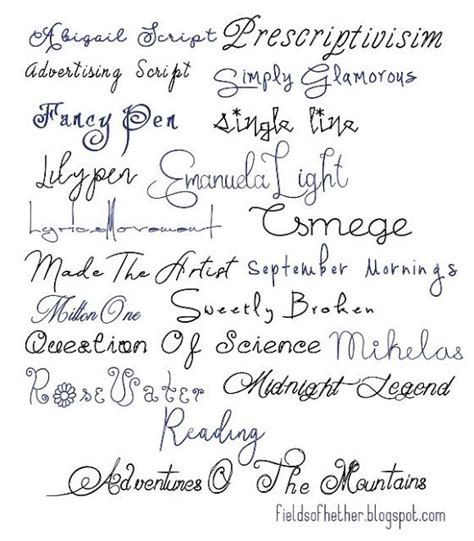 Abigail Script Prescriptivisim
Advertising Script Simply Glamorous
Fancy Pen single line
Lilypen Emanuela Light
Lyrics Movement Esmege
Made The Artist September Mornings
Milton One Sweetly Broken
Question Of Science Mikelas
RoseWater Midnight Legend
Reading
Adventures O The Mountains
fieldsofhether.blogspot.com